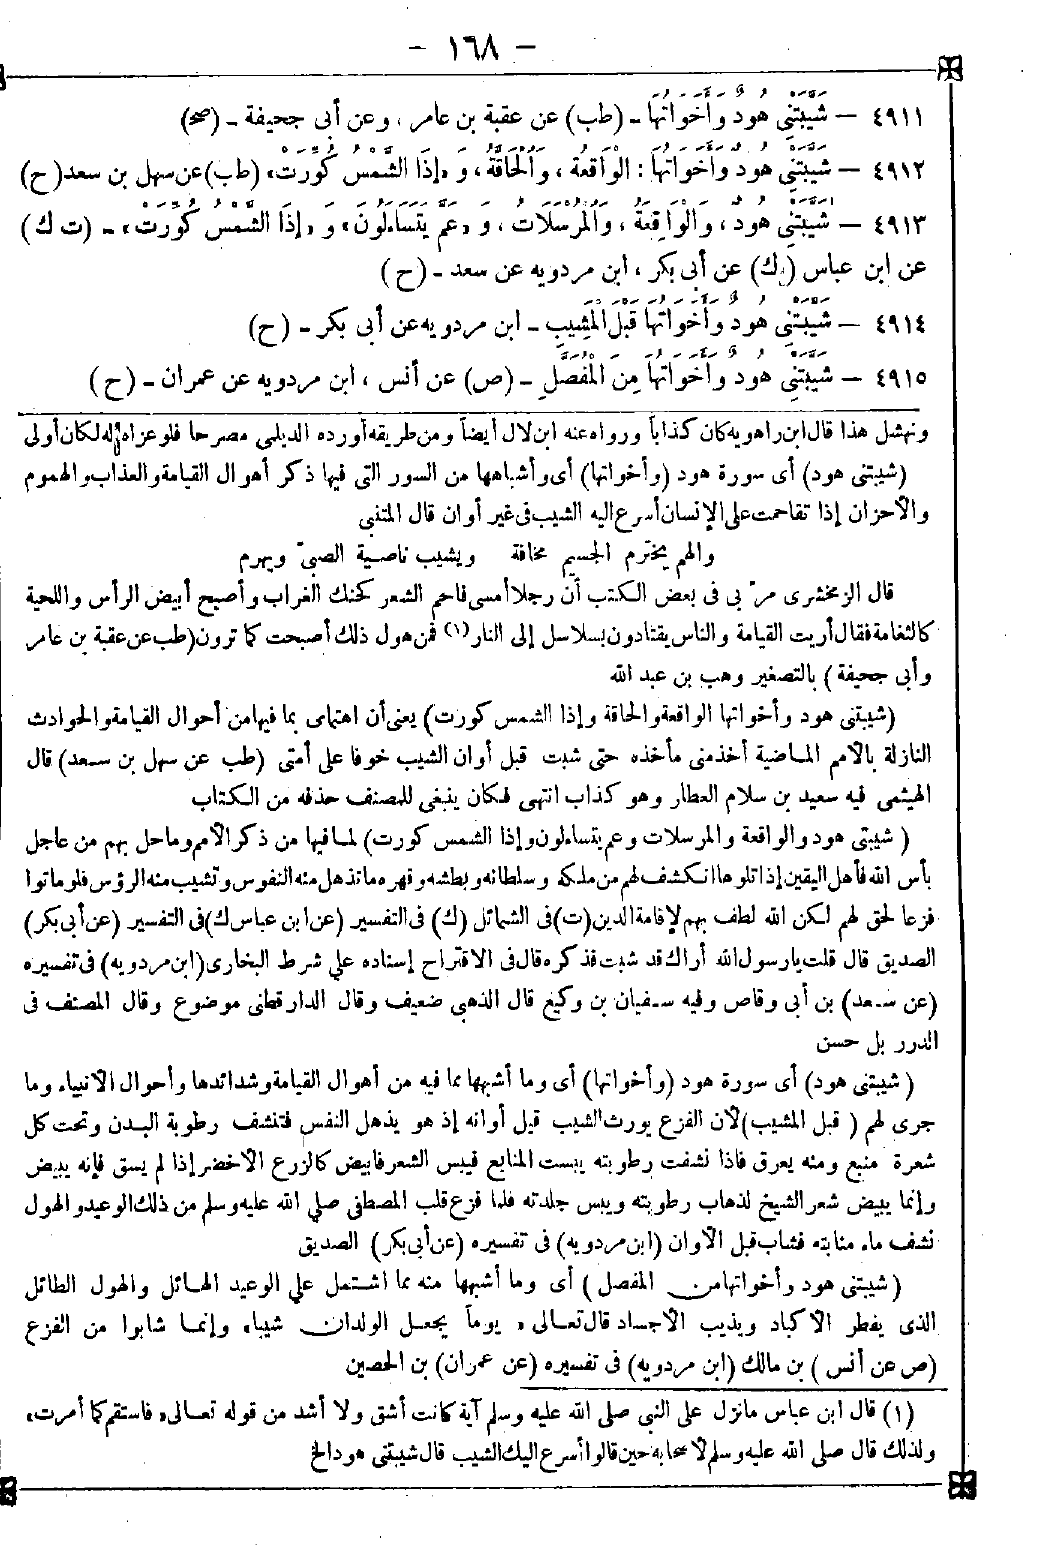 - ١٦٨ -
٤٩١١ - شَيَّبَتْنِي هُودٌ وَأَخَوَاتُهَا - (طب) عن عقبة بن عامر ، وعن أبى جحيفة - (صح)
٤٩١٢ - شَيَّبَتْنِي هُودٌ وَأَخَوَاتُهَا : الْوَاقِعَةُ ، وَالْحَاقَّةُ ، وَ «إِذَا الشَّمْسُ كُوِّرَتْ» (طب) عن سهل بن سعد (ح)
٤٩١٣ - شَيَّبَتْنِي هُودٌ ، وَالْوَاقِعَةُ ، وَالْمُرْسَلَاتُ ، وَ «عَمَّ يَتَسَاءَلُونَ» وَ «إِذَا الشَّمْسُ كُوِّرَتْ» - (ت ك)
عن ابن عباس (ك) عن أبى بكر ، ابن مردويه عن سعد - (ح)
٤٩١٤ - شَيَّبَتْنِي هُودٌ وَأَخَوَاتُهَا قَبْلَ الْمَشِيبِ - ابن مردويه عن أبى بكر - (ح)
٤٩١٥ - شَيَّبَتْنِي هُودٌ وَأَخَوَاتُهَا مِنَ الْمُفَصَّلِ - (ص) عن أنس ، ابن مردويه عن عمران - (ح)
ونهشل هذا قال ابن راهويه كان كذاباً ورواه عنه ابن لال أيضاً ومن طريقه أورده الديلى مصرحا فلو عزاه له لكان أولى
(شيبتنى هود) أى سورة هود (وأخواتها) أى وأشباهها من السور التى فيها ذكر أهوال القيامة والعذاب والهموم
والأحزان إذا تقاحمت على الإنسان أسرع اليه الشيب فى غير أوان قال المتنبى
والهم يخترم الجسيم مخافة ويشيب ناصية الصبىّ ويهرم
قال الزمخشرى مرّ بى فى بعض الكتب أن رجلا أمسى فاحم الشعر كحنك الغراب وأصبح أبيض الرأس واللحية
كالثغامة فقال أريت القيامة والناس يقتادون بسلاسل إلى النار (١) فمن هول ذلك أصبحت كما ترون (طب عن عقبة بن عامر
وأبى جحيفة) بالتصغير وهب بن عبد الله
(شيبتنى هود وأخواتها الواقعة والحاقة وإذا الشمس كورت) يعنى أن اهتمامى بما فيها من أحوال القيامة والحوادث
النازلة بالأمم الماضية أخذ منى مأخذه حتى شبت قبل أوان الشيب خوفا على أمتى (طب عن سهل بن سعد) قال
الهيثمى فيه سعيد بن سلام العطار وهو كذاب انتهى فكان ينبغى للمصنف حذفه من الكتاب
(شيبتى هود والواقعة والمرسلات وعم يتساءلون وإذا الشمس كورت) لما فيها من ذكر الأمم وما حل بهم من عاجل
بأس الله فأهل اليقين إذا تلوها انكشف لهم من ملكه وسلطانه وبطشه وقهره ما تذهل منه النفوس وتشيب منه الرؤس فلو ماتوا
فزعا لحق لهم لكن الله لطف بهم لإقامة الدين (ت) فى الشمائل (ك) فى التفسير (عن ابن عباس ك) فى التفسير (عن أبى بكر)
الصديق قال قلت يارسول الله أراك قد شبت فذكره قال فى الاقتراح إسناده على شرط البخارى (ابن مردويه) فى تفسيره
(عن سعد) بن أبى وقاص وفيه سفيان بن وكيع قال الذهبى ضعيف وقال الدارقطنى موضوع وقال المصنف فى
الدرر بل حسن
(شيبتنى هود) أى سورة هود (وأخواتها) أى وما أشبهها مما فيه من أهوال القيامة وشدائدها وأحوال الأنبياء وما
جرى لهم (قبل المشيب) لأن الفزع يورث الشيب قبل أوانه إذ هو يذهل النفس فتنشف رطوبة البدن وتحت كل
شعرة منبع ومنه يعرق فاذا نشفت رطوبته يبست المنابع فيبس الشعر فابيض كالزرع الاخضر إذا لم يسق فإنه يبيض
وإنما يبيض شعر الشيخ لذهاب رطوبته ويبس جلدته فلما فزع قلب المصطفى صلى الله عليه وسلم من ذلك الوعيد والهول
نشف ماء منابته فشاب قبل الأوان (ابن مردويه) فى تفسيره (عن أبى بكر) الصديق
(شيبتنى هود وأخواتها من المفصل) أى وما أشبهها منه مما اشتمل على الوعيد الهائل والهول الطائل
الذى يفطر الأكباد ويذيب الأجساد قال تعالى «يوماً يجعل الولدان شيبا» وإنما شابوا من الفزع
(ص عن أنس) بن مالك (ابن مردويه) فى تفسيره (عن عمران) بن الحصين
(١) قال ابن عباس مانزل على النبى صلى الله عليه وسلم آية كانت أشق ولا أشد من قوله تعالى «فاستقم كما أمرت»
ولذلك قال صلى الله عليه وسلم لأصحابه حين قالوا أسرع اليك الشيب قال شيبتنى هود الخ